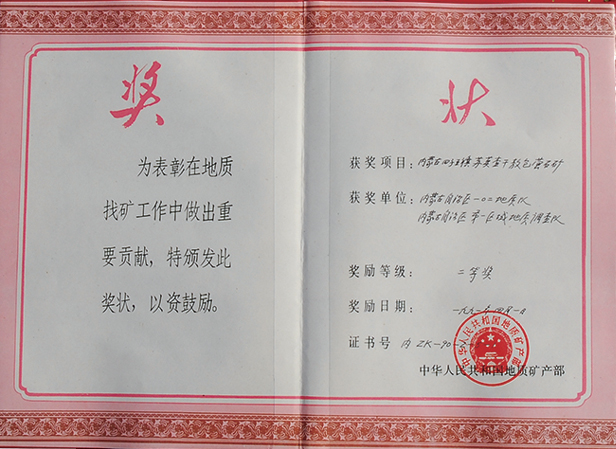 奖
为表彰在地质
找矿工作中做出重
要贡献，特颁发此
奖状，以资鼓励。
状
获奖项目：内蒙古四子王旗苏莫查干敖包萤石矿
获奖单位：内蒙古自治区一〇二地质队
内蒙古自治区第一区域地质调查队
奖励等级：二等奖
奖励日期：一九九一年四月一日
证书号 内 ZK-90
中华人民共和国地质矿产部
中华人民共和国地质矿产部